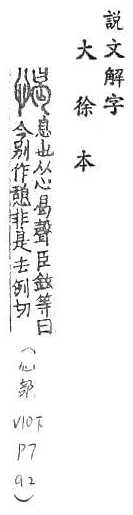 説文解字
大徐本
愒 息也从心曷聲臣鉉等曰
今別作憩非是去例切
(心部 V10下 P7 a2)